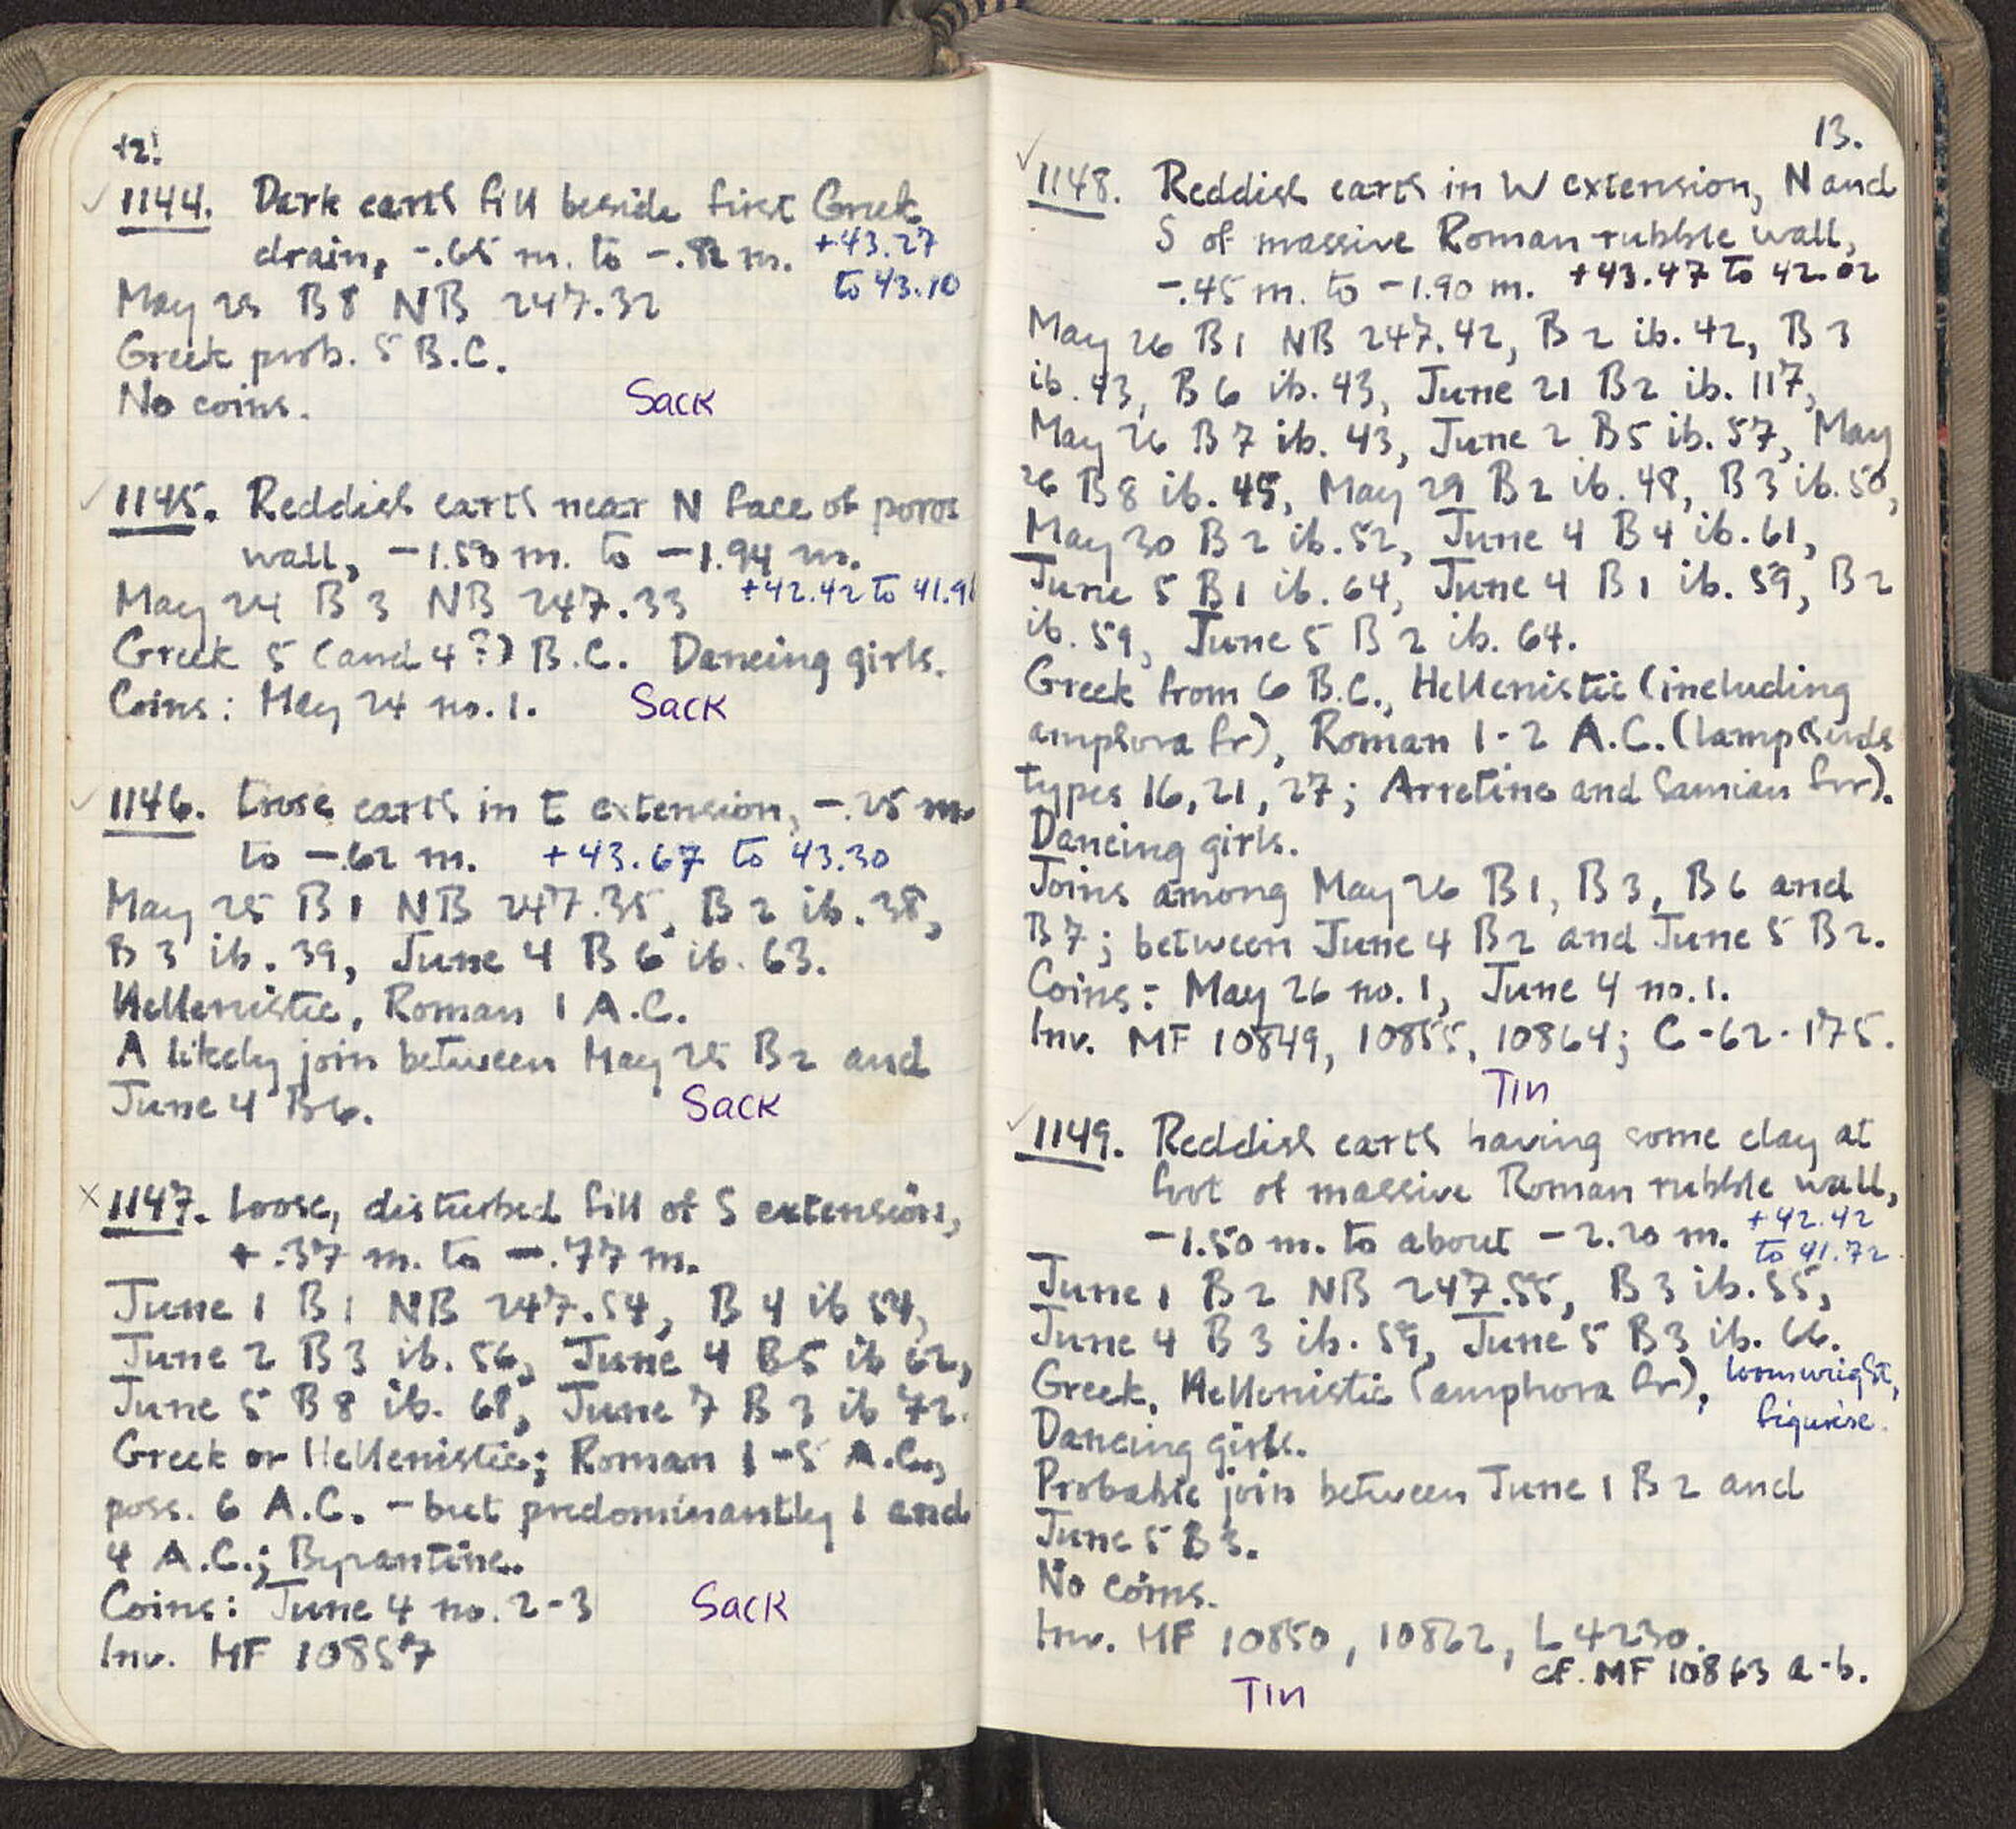 12.
1144. Dark earth fill beside first Greek
drain, -.65 m. to -.82 m. +43.27
to 43.10
May 25 B 8 NB 247.32
Greek prob. 5 B.C.
No coins. Sack
1145. Reddish earth near N face of poros
wall, -1.50 m. to -1.94 m.
May 24 B 3 NB 247.33 +42.42 to 41.98
Greek 5 (and 4?) B.C. Dancing girls.
Coins: May 24 no. 1. Sack
1146. Loose earth in E extension, -.25 m.
to -.62 m. +43.67 to 43.30
May 25 B 1 NB 247.35, B 2 ib. 38,
B 3 ib. 39, June 4 B 6 ib. 63.
Hellenistic, Roman 1 A.C.
A likely join between May 25 B 2 and
June 4 B 6. Sack
1147. Loose, disturbed fill of S extension,
+.37 m. to -.77 m.
June 1 B 1 NB 247.54, B 4 ib 54,
June 2 B 3 ib. 56, June 4 B 5 ib 62,
June 5 B 8 ib. 68, June 7 B 3 ib 72.
Greek or Hellenistic; Roman 1-5 A.C.,
poss. 6 A.C. - but predominantly 1 and
4 A.C.; Byzantine.
Coins: June 4 no. 2-3 Sack
Inv. MF 10857
13.
1148. Reddish earth in W extension, N and
S of massive Roman rubble wall,
-.45 m. to -1.90 m. +43.47 to 42.02
May 26 B 1 NB 247.42, B 2 ib. 42, B 3
ib. 43, B 6 ib. 43, June 21 B 2 ib. 117,
May 26 B 7 ib. 43, June 2 B 5 ib. 57, May
26 B 8 ib. 45, May 29 B 2 ib. 48, B 3 ib. 50,
May 30 B 2 ib. 52, June 4 B 4 ib. 61,
June 5 B 1 ib. 64, June 4 B 1 ib. 59, B 2
ib. 59, June 5 B 2 ib. 64.
Greek from 6 B.C., Hellenistic (including
amphora fr), Roman 1-2 A.C. (lamp
types 16, 21, 27; Arretine and Samian frr).
Dancing girls.
Joins among May 26 B 1, B 3, B 6 and
B 7; between June 4 B 2 and June 5 B 2.
Coins: May 26 no. 1, June 4 no. 1.
Inv. MF 10849, 10855, 10864; C-62-175.
Tin
1149. Reddish earth having some clay at
foot of massive Roman rubble wall,
-1.50 m. to about -2.20 m. +42.42
to 41.72
June 1 B 2 NB 247.55, B 3 ib. 55,
June 4 B 3 ib. 59, June 5 B 3 ib. 66.
Greek, Hellenistic (amphora fr), loomweight,
figurine.
Dancing girls.
Probable join between June 1 B 2 and
June 5 B 3.
No coins.
Inv. MF 10850, 10862, L 4230.
cf. MF 10863 a-b.
Tin